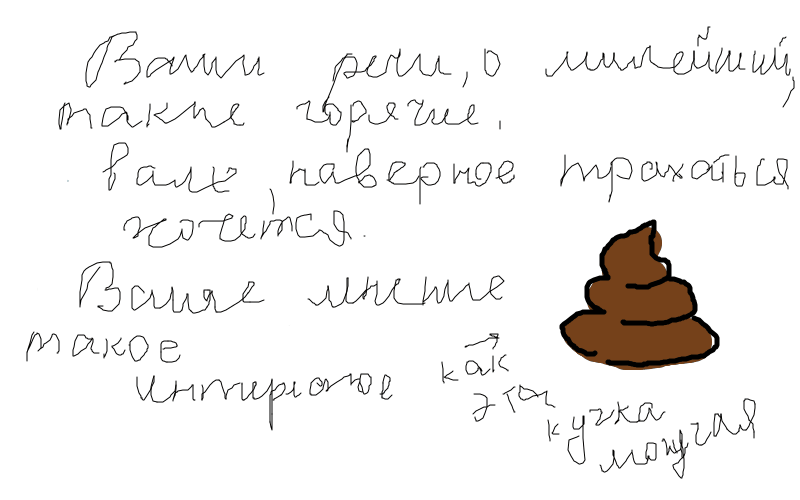 Ваши речи, о милейший,
такие горячие.
Вам, наверное трахаться
хочется.
Ваше мнение
такое
интересное как
эта
кучка
могучая